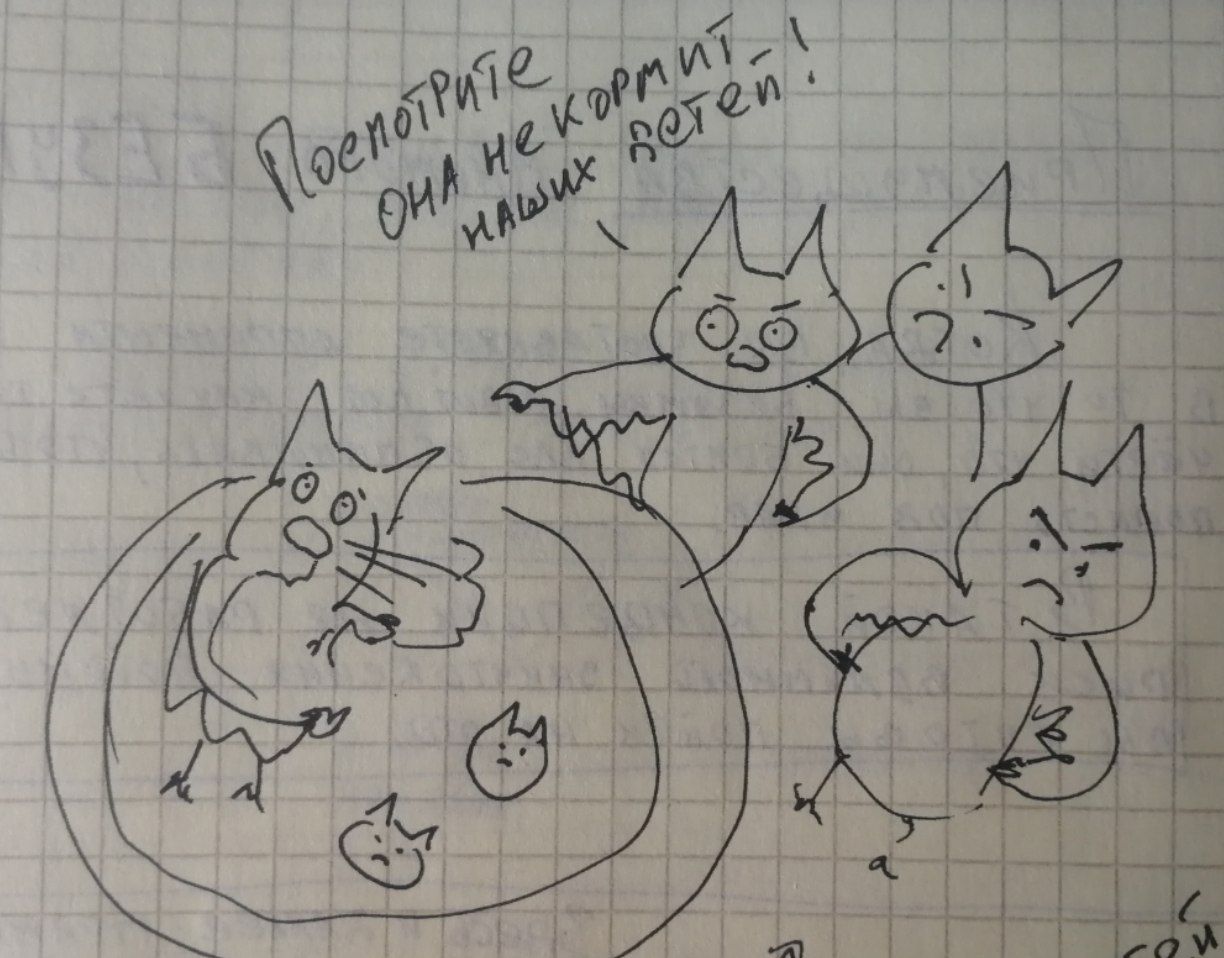 Посмотрите
она не кормит
наших детей!